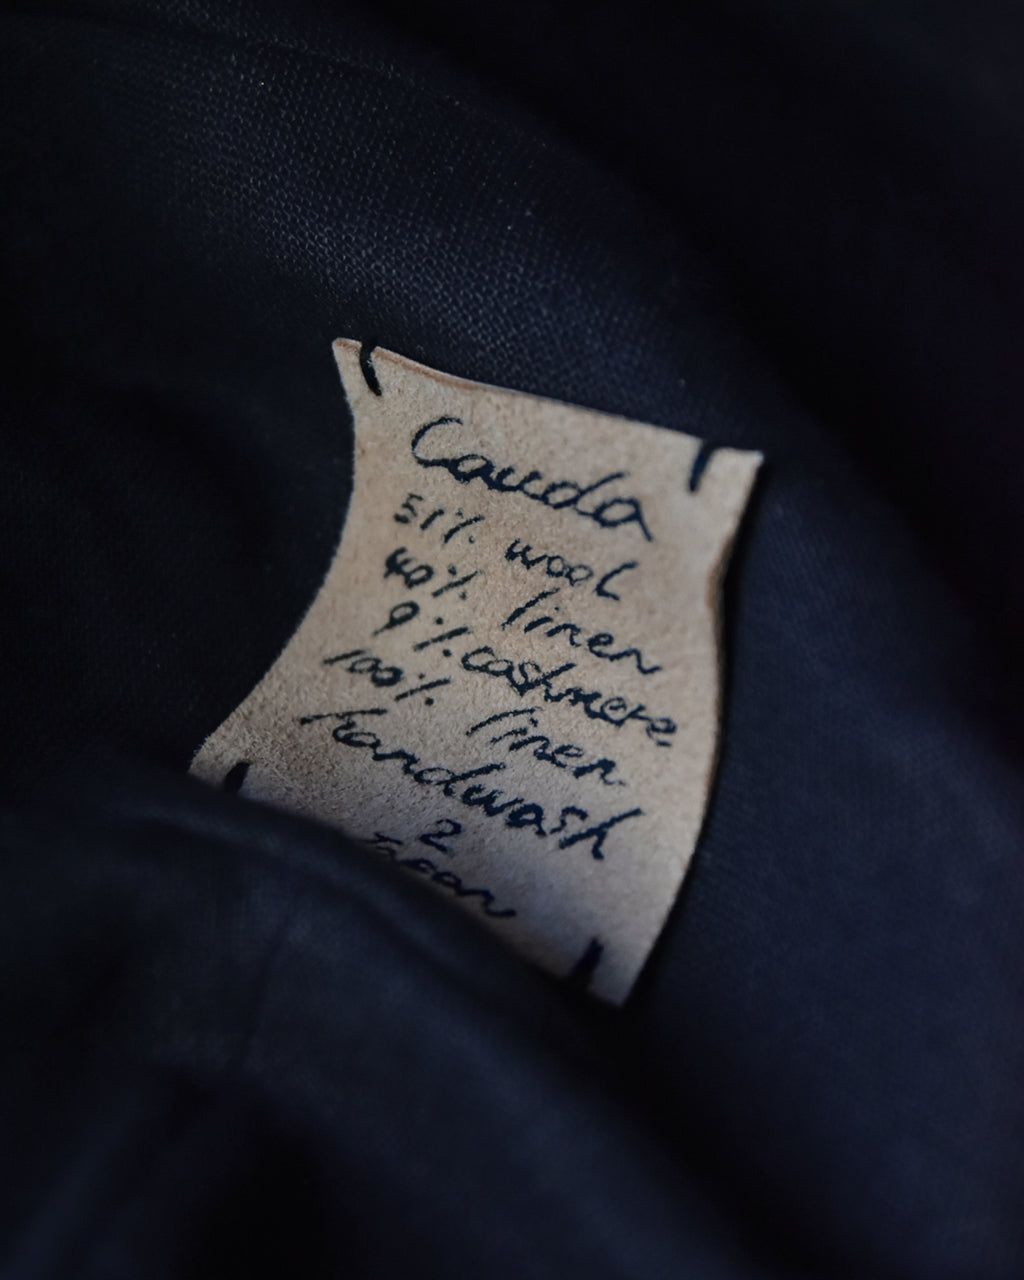 Cauda
51% wool
40% linen
9% cashmere,
100% linen
handwash
2
Japan